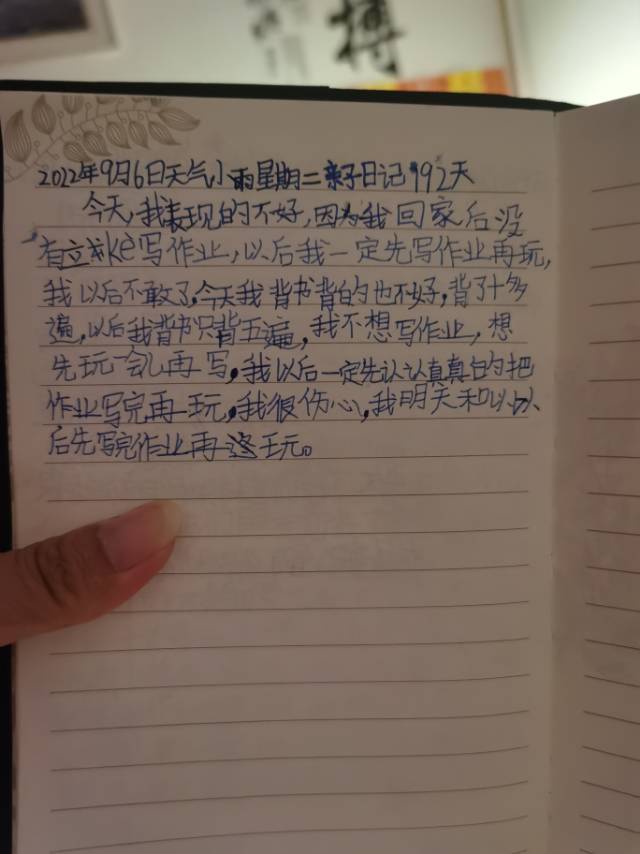 搏
2022年9月6日天气小雨星期二亲子日记192天
今天,我表现的不好,因为我回家后没
有立刻ke写作业,以后我一定先写作业再玩,
我以后不敢了,今天我背书背的也不好,背了十多
遍,以后我背书只背五遍,我不想写作业,想
先玩一会儿再写,我以后一定先认认真真的把
作业写完再玩,我很伤心,我明天和以以
后先写完作业再玩。